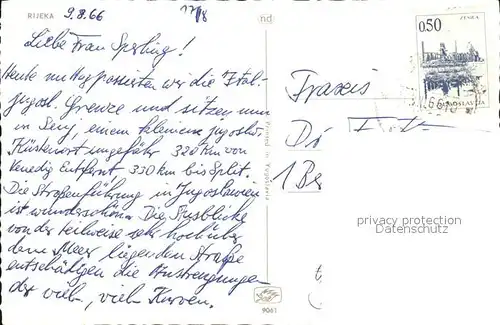 RIJEKA
9.8.66
17/8
nd
Liebe Frau Sperling!
Heute mittag passierten wir die Ital.-
jugosl. Grenze und sitzen nun
in Senj, einem kleinen jugosl.
Küstenort ungefähr 320 km von
Venedig entfernt 330 km bis Split.
Die Straßenführung in Jugoslawien
ist wunderschön. Die Ausblicke
von der teilweise sehr hoch über
dem Meer liegenden Straße
entschädigen die Anstrengungen
der viel, viel Kurven.
Printed in Yugoslavia
9061
0.50
ZENICA
JUGOSLAVIJA
66
Praxis
1 Be
privacy protection
Datenschutz